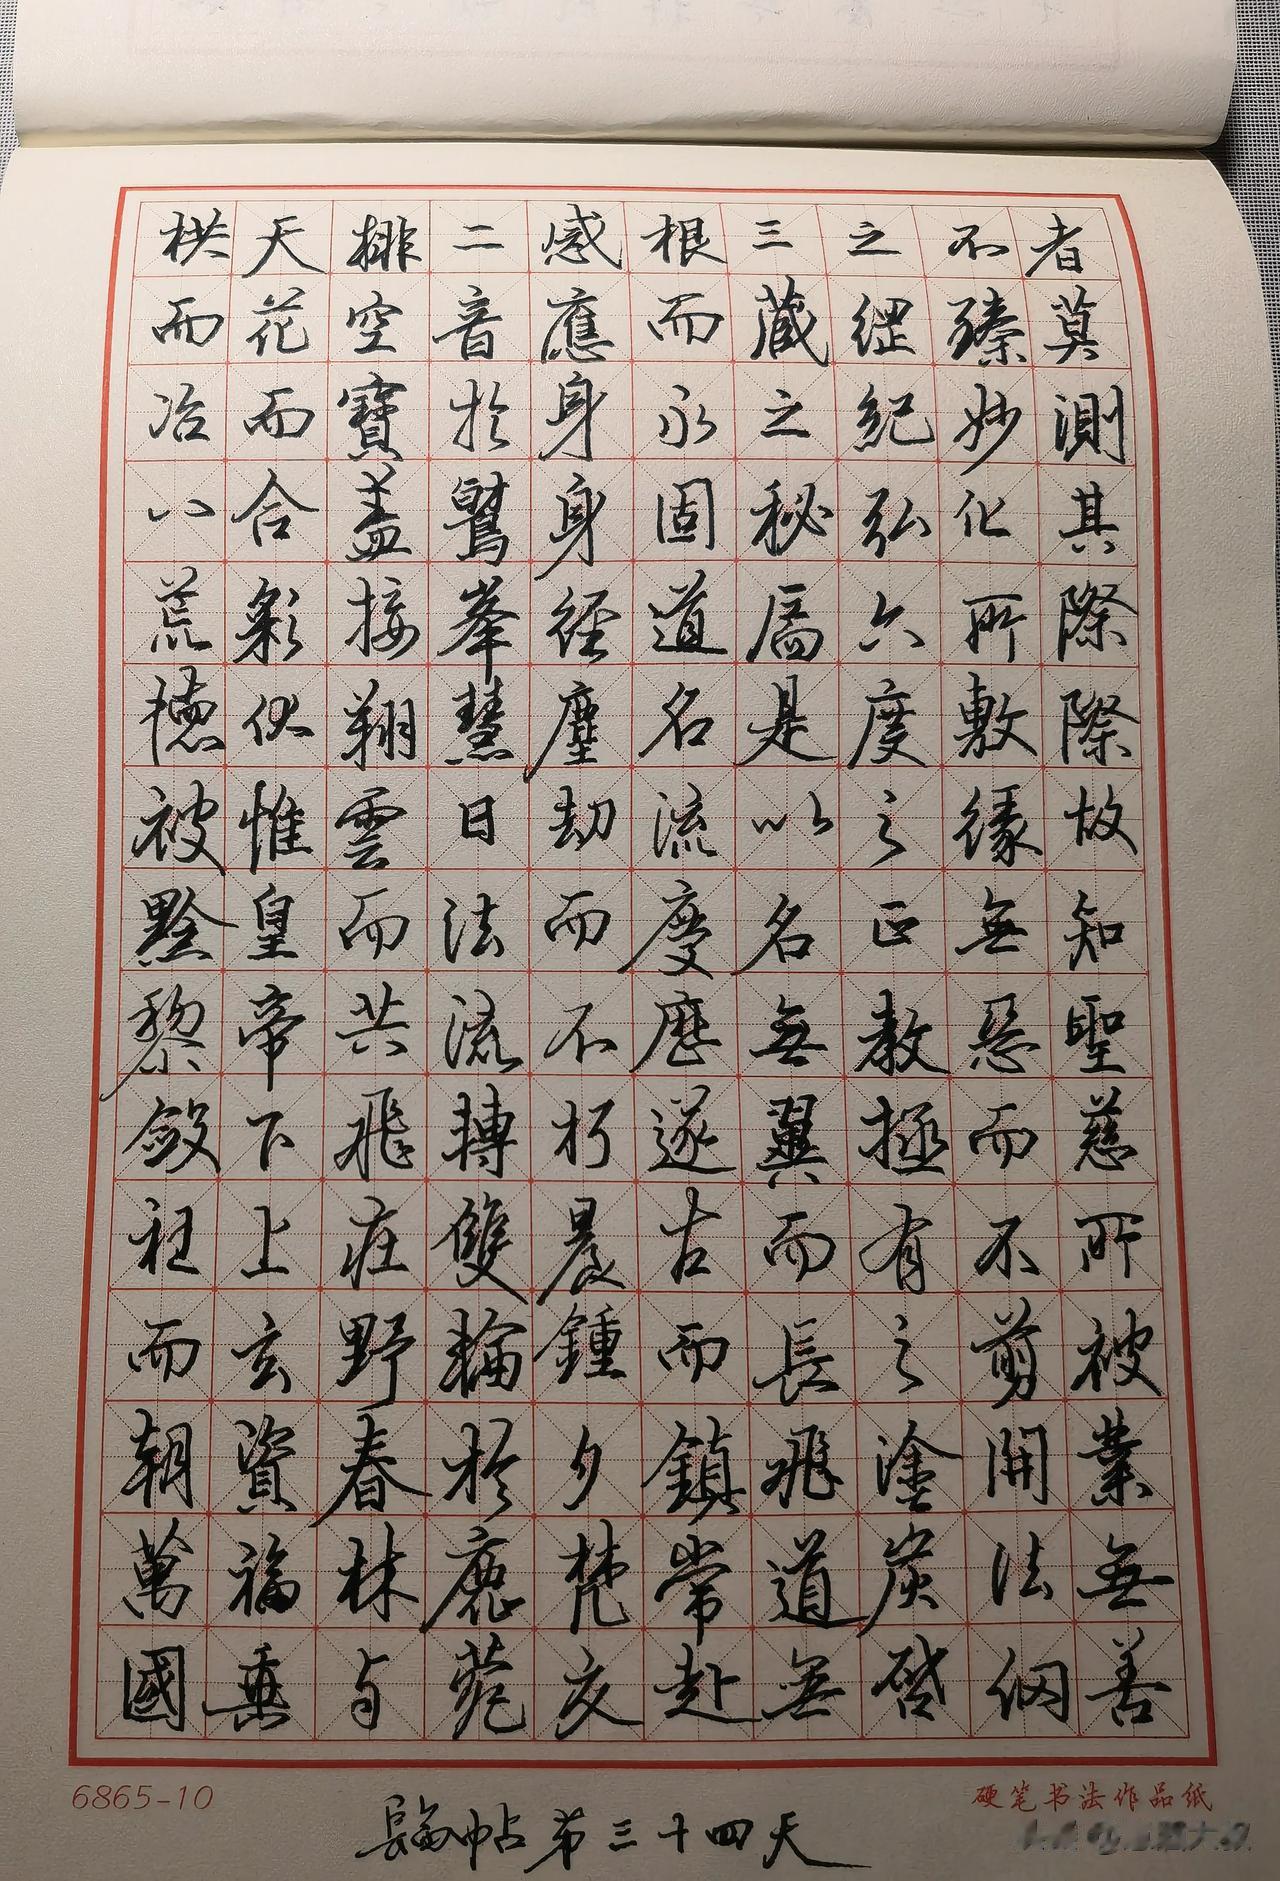 者莫測其際際故知聖慈所被業無善
不臻妙化所敷緣無惡而不剪開法網
之綱紀弘六度之正教拯有之塗炭啓
三藏之秘扃是以名無翼而長飛道無
根而永固道名流慶歷遂古而鎮常赴
感應身身經塵劫而不朽晨鍾夕梵交
二音於鷲峯慧日法流轉雙輪於鹿菀
排空寶盖接翔雲而共飛莊野春林与
天花而合彩伏惟皇帝下上玄資福垂
拱而治八荒德被黔黎斂衽而朝萬國
6865-10
硬笔书法作品纸
帖第三十四天